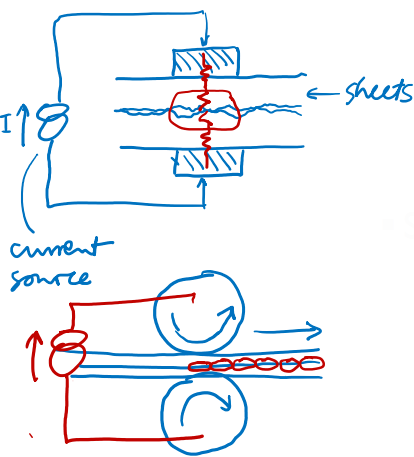 sheets
I
current
source